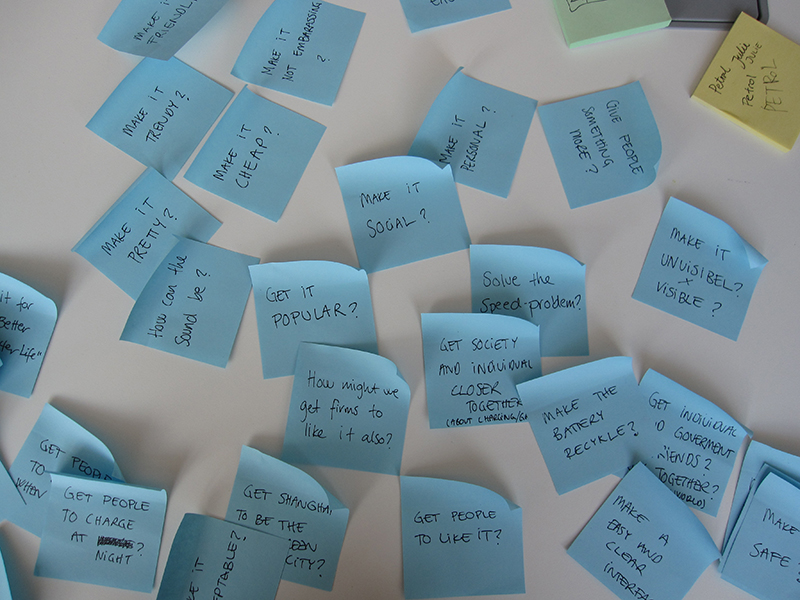 MAKE IT
FRIENDL
MAKE IT
NOT EMBARASSING
?
Petrol Julie
Petrol JULIE
PETROL
MAKE IT
TRENDY?
MAKE IT
CHEAP?
MAKE IT
PERSONAL?
GIVE PEOPLE
SOMETHING
MORE?
MAKE IT
PRETTY?
MAKE IT
SOCIAL?
MAKE IT
UNVISIBEL?
x
VISIBLE?
How can the
Sound be?
GET IT
POPULAR?
Solve the
Speed-problem?
it for
Better
ter-Life"
GET SOCIETY
AND INDIVIDUAL
CLOSER
TOGETHER
(ABOUT CHARGING/
How might we
get firms to
like it also?
MAKE THE
BATTERY
RECYCLE?
GET INDIVIDUAL
D GOVERMENT
IENDS?
TOGETHER?
WORLDS)
GET PEOPLE
TO
WHEN
GET PEOPLE
TO CHARGE
AT
NIGHT?
GET SHANGHA
TO BE THE
EEN
CITY?
IT
EPTABLE?
GET PEOPLE
TO LIKE IT?
MAKE A
EASY AND
CLEAR
INTERFA
MAKE
SAFE?